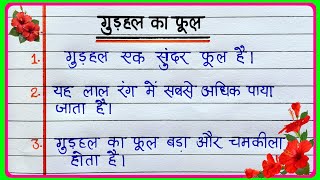 गुड़हल का फूल
1. गुड़हल एक सुंदर फूल है।
2. यह लाल रंग में सबसे अधिक पाया
जाता है।
3. गुड़हल का फूल बड़ा और चमकीला
होता है।